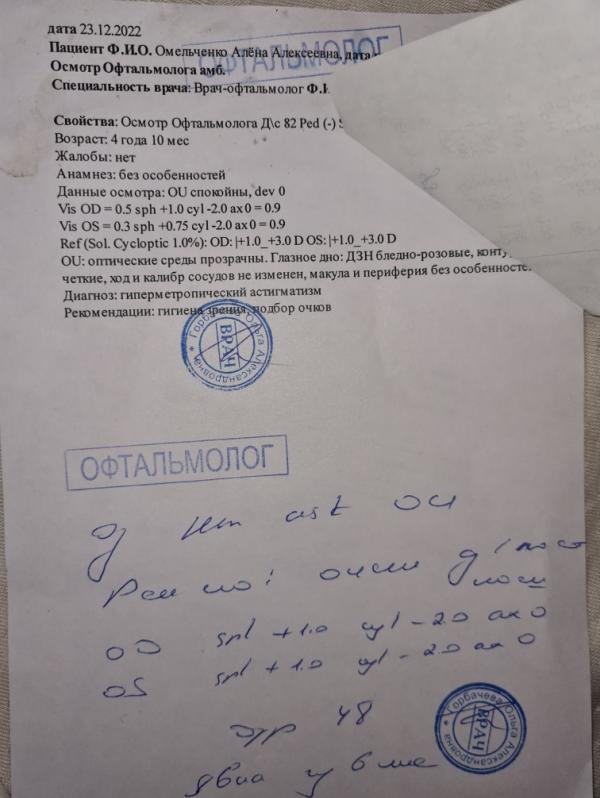 дата 23.12.2022
ОФТАЛЬМОЛОГ
Пациент Ф.И.О. Омельченко Алёна Алексеевна, дата
Осмотр Офтальмолога амб.
Специальность врача: Врач-офтальмолог Ф.И
Свойства: Осмотр Офтальмолога Д\с 82 Ped (-) S
Возраст: 4 года 10 мес
Жалобы: нет
Анамнез: без особенностей
Данные осмотра: OU спокойны, dev 0
Vis OD = 0.5 sph +1.0 cyl -2.0 ax 0 = 0.9
Vis OS = 0.3 sph +0.75 cyl -2.0 ax 0 = 0.9
Ref (Sol. Cycloptic 1.0%): OD: |+1.0_+3.0 D OS: |+1.0_+3.0 D
OU: оптические среды прозрачны. Глазное дно: ДЗН бледно-розовые, конту
четкие, ход и калибр сосудов не изменен, макула и периферия без особенносте
Диагноз: гиперметропический астигматизм
Рекомендации: гигиена зрения, подбор очков
Горбачева Ольга Александровна
ВРАЧ
ОФТАЛЬМОЛОГ
ast OU
очки д/пост
нош
OD sph +1.0 cyl -2.0 ax 0
OS sph +1.0 cyl -2.0 ax 0
48
Горбачева Ольга Александровна
ВРАЧ
6 мес